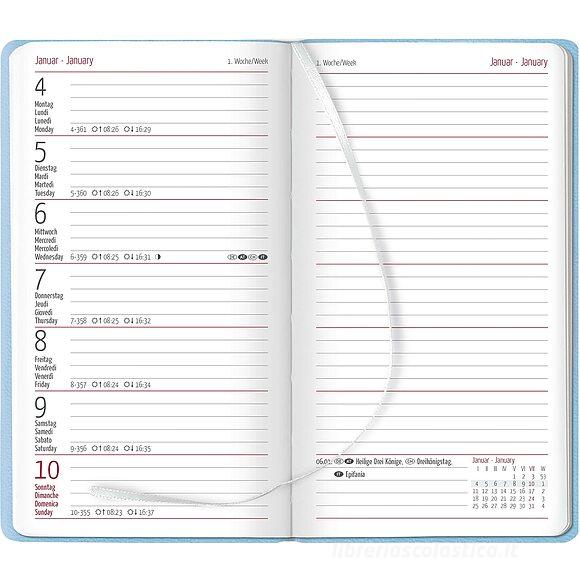 Januar · January
1. Woche/Week
4
Montag
Lundi
Lunedì
Monday
4-361 08:26 16:29
5
Dienstag
Mardi
Martedì
Tuesday
5-360 08:26 16:30
6
Mittwoch
Mercredi
Mercoledì
Wednesday
6-359 08:25 16:31
7
Donnerstag
Jeudi
Giovedì
Thursday
7-358 08:25 16:32
8
Freitag
Vendredi
Venerdì
Friday
8-357 08:24 16:34
9
Samstag
Samedi
Sabato
Saturday
9-356 08:24 16:35
10
Sonntag
Dimanche
Domenica
Sunday
10-355 08:23 16:37
1. Woche/Week
Januar · January
06.01. Heilige Drei Könige, Dreikönigstag,
Epifania
Januar · January
I II III IV V VI VII W
1 2 3 53
4 5 6 7 8 9 10 1
11 12 13 14 15 16 17 2
18 19 20 21 22 23 24 3
25 26 27 28 29 30 31 4
libreriascolastica.it